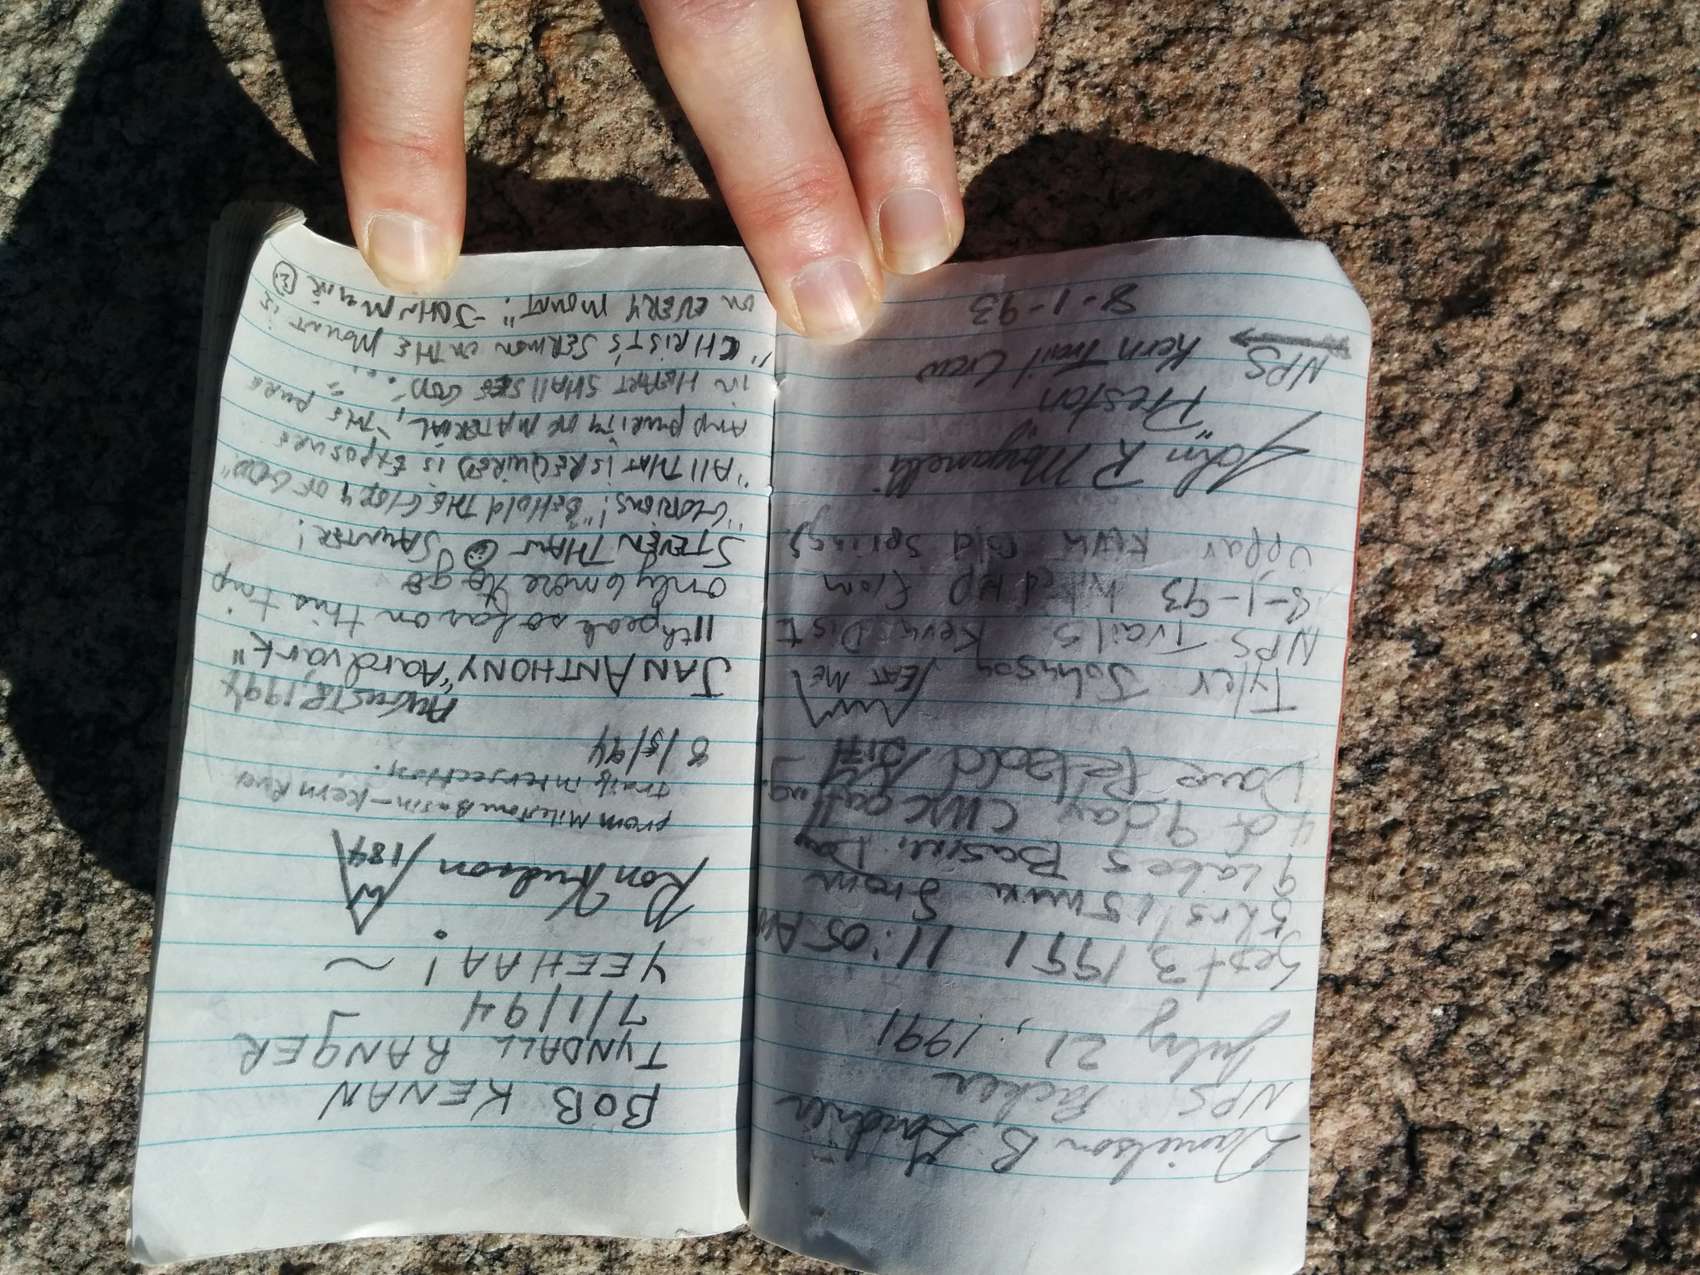 Danielson B
NPS Packer
July 21, 1991
Sept 3, 1991 11:05 AM
5 hrs 15 min from
9 Lakes Basin, Day
4 of 9 day
Dave
Tyler Johnson /EAT ME\
NPS Trails Kern Dist
8-1-93 hiked up from
Upper Kern Cold Springs.
John R Morganelli
"Preston
NPS Kern Trail Crew
8-1-93
BOB KENAN
TYNDALL RANGER
7/1/94
YEEHAA! ~
Ron Hudson /184\
From Milestone Basin - Kern River
trails intersection.
8/5/94
AUGUST 12, 1994
JAN ANTHONY "Aardvark"
11th peak so far on this trip
only 6 more to go
STEVEN THAW ☺ SAUNTER!
"GLORIOUS! "BEHOLD THE GLORY OF GOD"
"ALL THAT IS REQUIRED IS EXPOSURE
AND PURITY OF MATERIAL, "THE PURE
IN HEART SHALL SEE GOD"."
"CHRIST'S SERMON ON THE MOUNT IS
ON EVERY MOUNT." - JOHN MUIR ☺